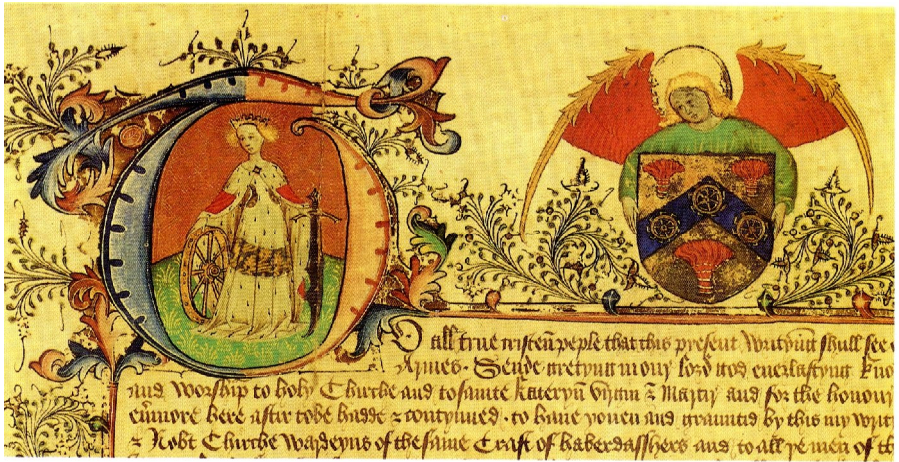 TO all true cristen peple that this present Writyng shall see
Armes · Sende gretyng in our lord god euerlastyng kno
and Worship to holy Chirche and to sainte kateryn & Martir and for the honour
eumore here aftir to be hadde & contynued · to haue youen and grauntid by this my writ
& Robt Chirche Wardeyns of the same Craft of haberdasshers and to all þe men of th